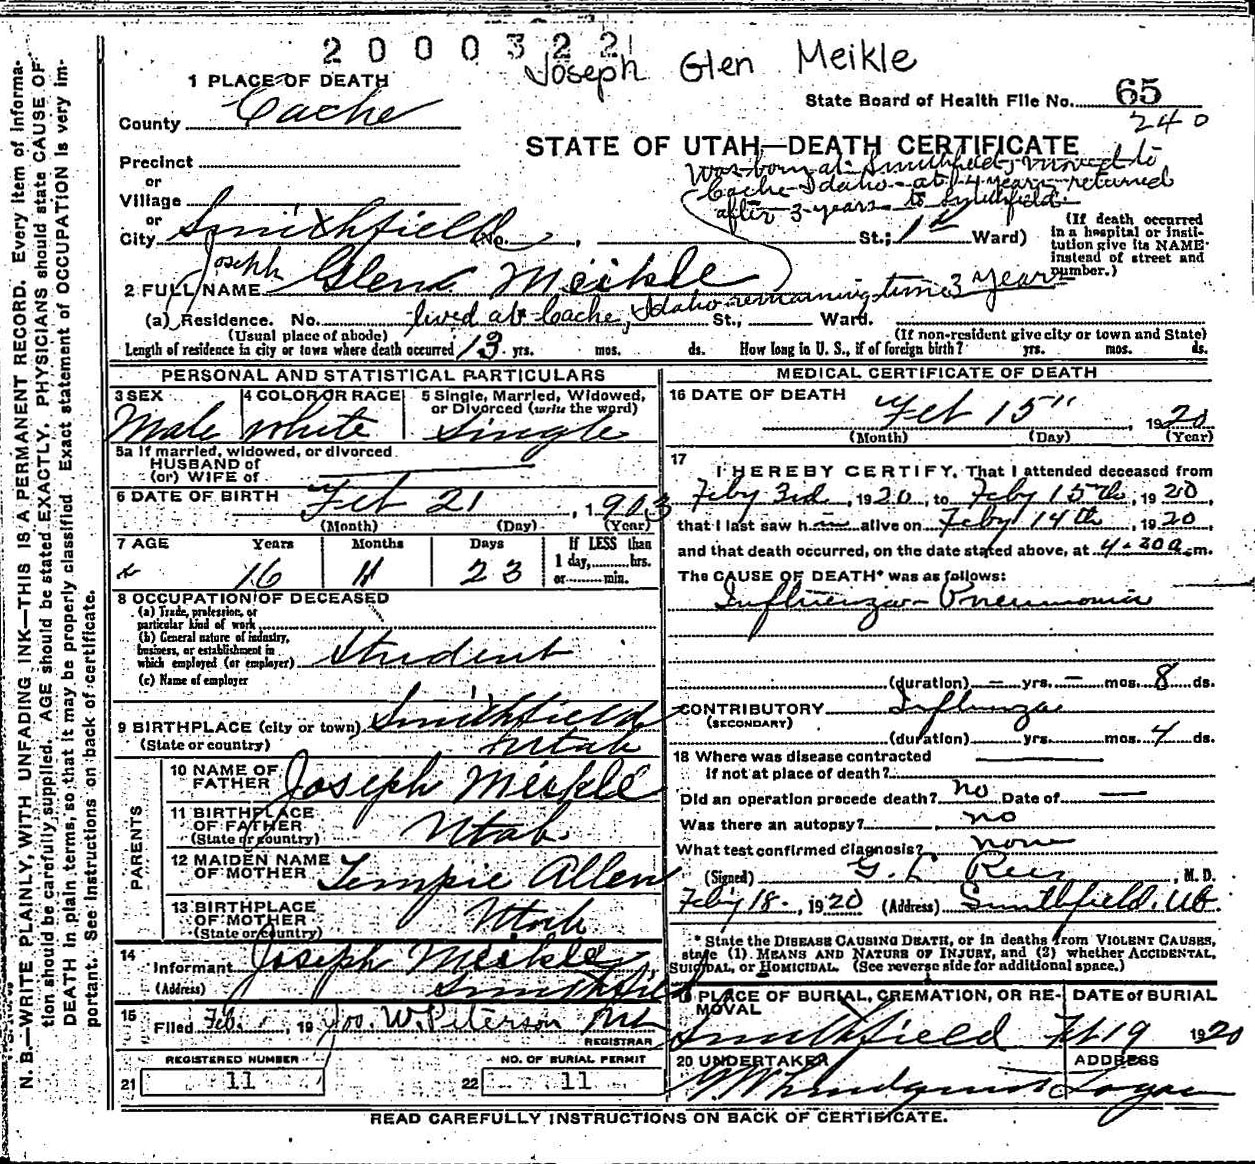 2000322
Joseph Glen Meikle
1 PLACE OF DEATH
State Board of Health File No. 65
County Cache
240
STATE OF UTAH—DEATH CERTIFICATE
Precinct
Was born at Smithfield, moved to
or
Cache Idaho at 14 years returned
Village
after 3 years to Smithfield.
or
City Smithfield No. , St.; 1st Ward)
(If death occurred in a hospital or institution give its NAME instead of street and number.)
Joseph
2 FULL NAME Glenn Meikle
(a) Residence. No. lived at Cache, Idaho remaining time 3 years St., Ward.
(Usual place of abode) (If non-resident give city or town and State)
Length of residence in city or town where death occurred 13 yrs. mos. ds. How long in U. S., if of foreign birth? yrs. mos. ds.
PERSONAL AND STATISTICAL PARTICULARS
3 SEX Male
4 COLOR OR RACE white
5 Single, Married, Widowed, or Divorced (write the word) Single
5a If married, widowed, or divorced
HUSBAND of
(or) WIFE of
6 DATE OF BIRTH Feb 21, 1903
(Month) (Day) (Year)
7 AGE Years Months Days If LESS than
16 11 23 1 day, hrs.
or min.
8 OCCUPATION OF DECEASED
(a) Trade, profession, or
particular kind of work
(b) General nature of industry,
business, or establishment in
which employed (or employer) Student
(c) Name of employer
9 BIRTHPLACE (city or town) Smithfield
(State or country) Utah
PARENTS
10 NAME OF FATHER Joseph Meikle
11 BIRTHPLACE OF FATHER (State or country) Utah
12 MAIDEN NAME OF MOTHER Tempie Allen
13 BIRTHPLACE OF MOTHER (State or country) Utah
14 Informant Joseph Meikle
(Address) Smithfield
15 Filed Feb. , 19 Jos. W. Peterson
REGISTRAR
REGISTERED NUMBER NO. OF BURIAL PERMIT
21 11 22 11
MEDICAL CERTIFICATE OF DEATH
16 DATE OF DEATH Feb 15", 1920
(Month) (Day) (Year)
17
I HEREBY CERTIFY, That I attended deceased from
Feby 3rd, 1920, to Feby 15th, 1920,
that I last saw h alive on Feby 14th, 1920,
and that death occurred, on the date stated above, at 4-30a.m.
The CAUSE OF DEATH* was as follows:
Influenza-Pneumonia
(duration) — yrs. — mos. 8 ds.
CONTRIBUTORY Influenza
(SECONDARY)
(duration) yrs. mos. 4 ds.
18 Where was disease contracted
if not at place of death?
Did an operation precede death? no Date of —
Was there an autopsy? no
What test confirmed diagnosis? none
(Signed) G. L. Rees, M. D.
Feby 18, 1920 (Address) Smithfield. Ut.
* State the DISEASE CAUSING DEATH, or in deaths from VIOLENT CAUSES,
state (1) MEANS AND NATURE OF INJURY, and (2) whether ACCIDENTAL,
SUICIDAL, or HOMICIDAL. (See reverse side for additional space.)
19 PLACE OF BURIAL, CREMATION, OR REMOVAL DATE of BURIAL
Smithfield Feb 19 1920
20 UNDERTAKER ADDRESS
Logan
READ CAREFULLY INSTRUCTIONS ON BACK OF CERTIFICATE.
N. B.—WRITE PLAINLY, WITH UNFADING INK—THIS IS A PERMANENT RECORD. Every item of information
should be carefully supplied. AGE should be stated EXACTLY. PHYSICIANS should state CAUSE OF
DEATH in plain terms, so that it may be properly classified. Exact statement of OCCUPATION is very important.
See instructions on back of certificate.